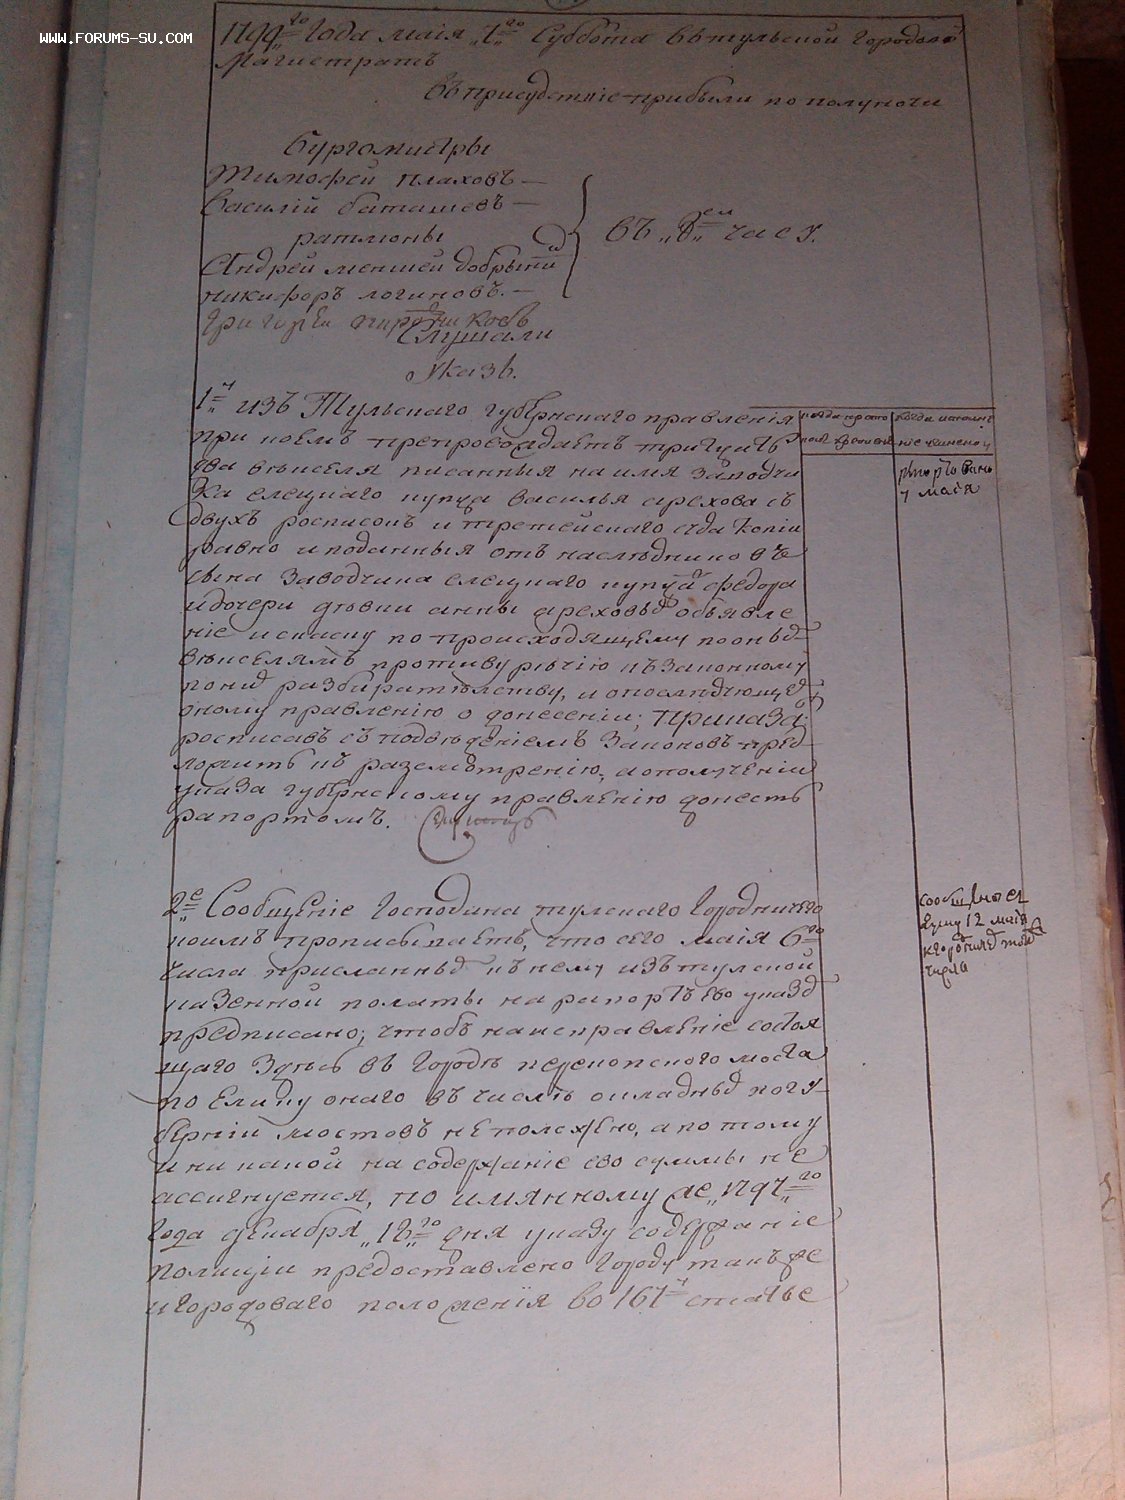 WWW.FORUMS-SU.COM
1799го года маия 7го Суббота въ тульской городовой
Магистратъ
въ присудствие прибыли по полуночи
бургомистры
Тимофей плаховъ
Василий баташевъ
ратманы
Андрей меншей добрынин
никифоръ логиновъ.
въ 8ем часу.
григорей
Слушали
Указъ.
1й изъ Тульскаго губернскаго правления
при коемъ препровождаетъ
два векселя писанныя на имя заводчи
ка елецкаго купца василья арехова съ
двухъ росписокъ и третейскаго суда копии
равно и поданныя отъ наследниковъ ево
сына заводчика елецкаго купца федора
и дочери девки анны ареховыхъ объявле
ние и сказку по происходящему по онымъ
векселямъ противуречию къ законному
по нихъ разбирательству, и о последующемъ
оному правлению о донесении; приказа:
росписавъ съ подведениемъ законовъ пред
ложить къ разсмотрению, а о получении
указа губернскому правлению донесть
рапортомъ.
когда
когда исполне
ние учинено
рапортовано
7 маия
2е Сообщение господина тулскаго городничего
коимъ прописываетъ, что сего маия 6го
числа присланнымъ къ нему изъ тулской
казенной полаты на рапортъ ево указомъ
предписано; чтобъ на исправление состоя
щаго здесь въ городе перекопского моста
по елику онаго въ числе окладныхъ по гу
бернии мостовъ не положено, а по тому
и ни какой на содержание ево суммы не
ассигнуется, по имянному же 1797го
года декабря 18го дня указу содержание
полиции предоставлено городу такъ же
и городоваго положения во 167й статье
сообщено
думу 12 маия
числа